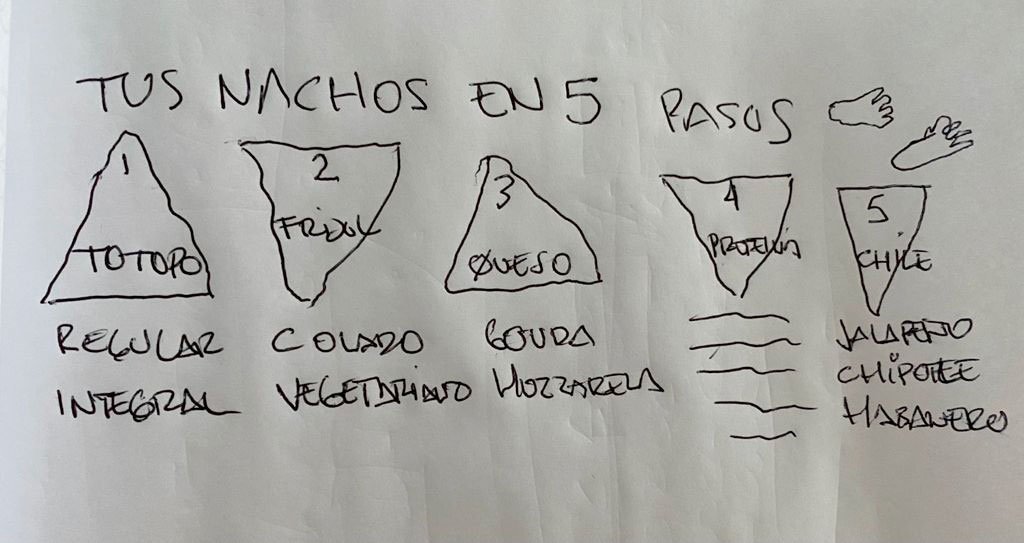 TUS NACHOS EN 5 PASOS
1
TOTOPO
REGULAR
INTEGRAL
2
FRIJOL
COLADO
VEGETARIANO
3
QUESO
GOUDA
MOZZARELA
4
PROTEINA
5
CHILE
JALAPEÑO
CHIPOTLE
HABANERO